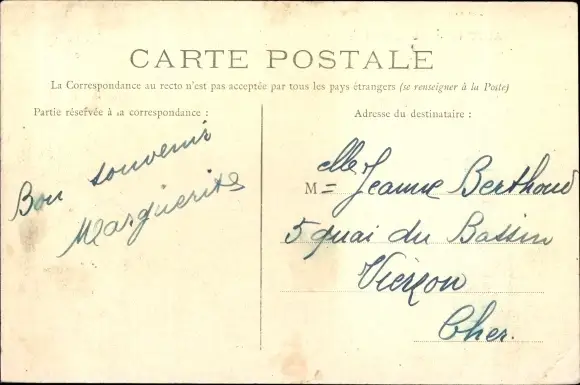 CARTE POSTALE
La Correspondance au recto n'est pas acceptée par tous les pays étrangers (se renseigner à la Poste)
Partie réservée à la correspondance :
Bon souvenir
Marguerite
Adresse du destinataire :
Melle Jeanne Berthoud
5 quai du Bassin
Vierzon
Cher.